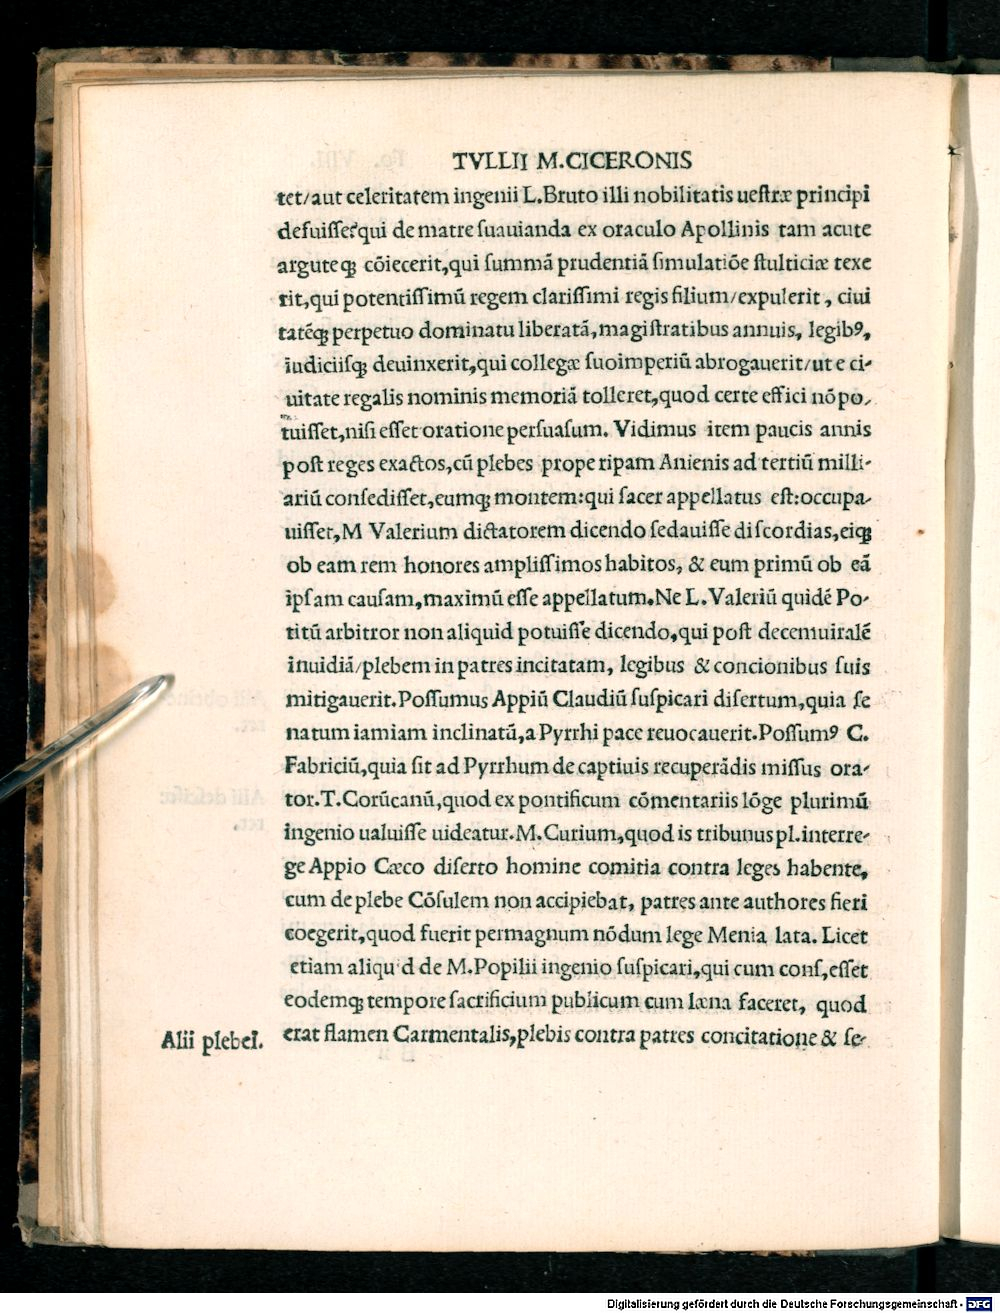 TVLLII M.CICERONIS
tet/aut celeritatem ingenii L.Bruto illi nobilitatis uestræ principi
defuisse?qui de matre suauianda ex oraculo Apollinis tam acute
arguteqꝫ cōiecerit,qui summā prudentiā simulatiōe stulticiæ texe
rit,qui potentissimū regem clarissimi regis filium/expulerit, ciui
tatēqꝫ perpetuo dominatu liberatā,magistratibus annuis, legibꝰ,
iudiciisqꝫ deuinxerit,qui collegæ suoimperiū abrogauerit/ut e ci-
uitate regalis nominis memoriā tolleret,quod certe effici nō po-
tuisset,nisi esset oratione persuasum. Vidimus item paucis annis
post reges exactos,cū plebes prope ripam Anienis ad tertiū milli-
ariū consedisset,eumqꝫ montem:qui sacer appellatus est:occupa-
uisset,M Valerium dictatorem dicendo sedauisse discordias,eiqꝫ
ob eam rem honores amplissimos habitos, & eum primū ob eā
ipsam causam,maximū esse appellatum.Ne L.Valeriū quidē Po-
titū arbitror non aliquid potuisse dicendo,qui post decemuiralē
inuidiā/plebem in patres incitatam, legibus & concionibus suis
mitigauerit.Possumus Appiū Claudiū suspicari disertum,quia se
natum iamiam inclinatū,a Pyrrhi pace reuocauerit.Possumꝰ C.
Fabriciū,quia sit ad Pyrrhum de captiuis recuperādis missus ora-
tor.T.Corūcanū,quod ex pontificum cōmentariis lōge plurimū
ingenio ualuisse uideatur.M.Curium,quod is tribunus pl.interre-
ge Appio Cæco diserto homine comitia contra leges habente,
cum de plebe Cōsulem non accipiebat, patres ante authores fieri
coegerit,quod fuerit permagnum nōdum lege Menia lata. Licet
etiam aliqu d de M.Popilii ingenio suspicari,qui cum cons,esset
eodemqꝫ tempore sacrificium publicum cum læna faceret, quod
erat flamen Carmentalis,plebis contra patres concitatione & se-
Alii plebeī.
Digitalisierung gefördert durch die Deutsche Forschungsgemeinschaft - DFG